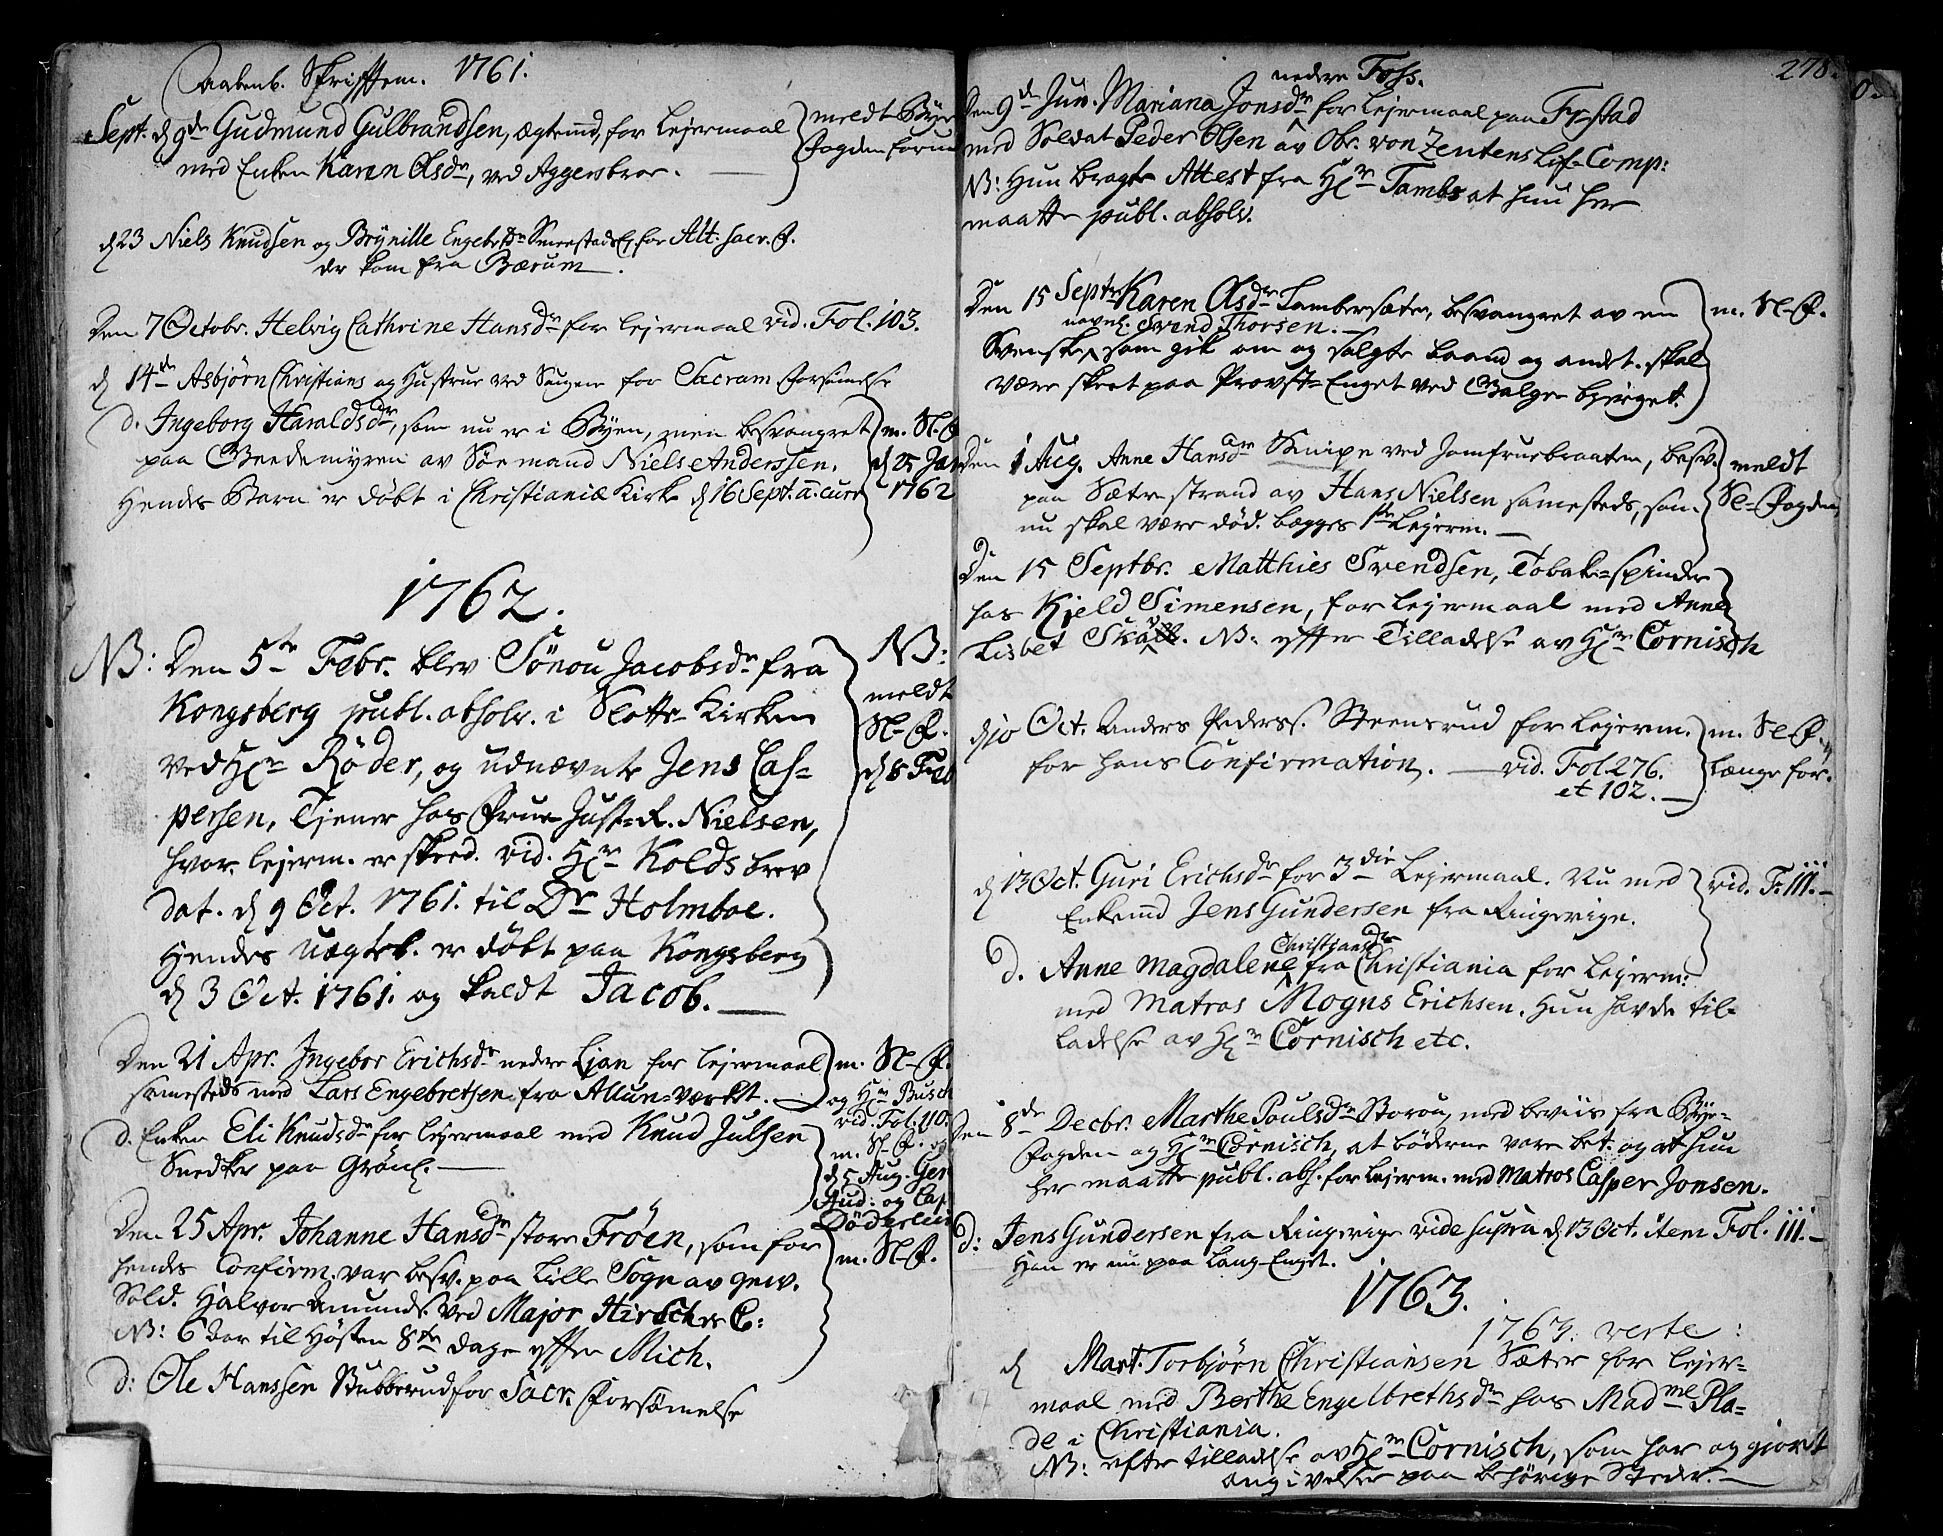 Aabenb. Skrifftem. 1761.
Sept. d 9de Gudmund Gulbrandsen, ægtemd, for Lejermaal
med Enken Karen Olsdr, ved Aggersbroe.
meldt Bye
Fogden forud
d 23 Niels Knudsen og Brynille Engebrdtr Smestad Eg, for Alt: sacr. F.
de kom fra Bærum.
Den 7 Octobr. Helvig Cathrine Hansdr for Lejermaal vid. Fol. 103.
d 14de Asbjørn Christians og Hustrue ved Saugene for Sacram Forsømelse
d. Ingeborg Haraldsdr, som nu er i Byen, men besvangret
paa Grædemyren av Søemand Niels Anderssen.
Hendes Barn er døbt i Christianiæ Kirke d 16 Sept. a: curr
m. Sl-F
d 25 Jan
1762
1762.
NB: Den 5te Febr. blev Sønou Jacobsdr fra
Kongsberg publ. absolv. i Slotts-Kirken
ved Hr Røder, og udnævnte Jens Cas=
persen, Tjener hos Frue Just-R. Nielsen,
hvor Lejerm. er skeed. vid. Hr Kolds brev
dat. d 9 Oct. 1761. til Dr Holmboe.
Hendes uægteb. er døbt paa Kongsberg
d 3 Oct. 1761. og kaldt Jacob.
NB:
meldt
Sl-F.
d 8 Feb
Den 21 Apr. Ingebor Erichsdr nedre Ljan for Lejermaal
samesteds med Lars Engebretsen fra Allun=værket.
m. Sl-F.
og Hr Busch
vid. Fol: 110.
d. Enken Eli Knudsdr for Lejermaal med Knud Julsen
Snedker paa Grønl.
m. Sl-F. og
d 5 Aug. Gen
Aud: og Cap
Døderlein
Den 25 Apr. Johanne Hansdr store Frøen, som for
hendes Confirm. var besv. paa Lille Sogn av gew.
Sold. Halvor Amunds. ved Major Hirsches C:
NB: 6 Aar til Høsten 8te dage efter Mich.
m. Sl-F.
d: Ole Hanssen Stubberud for Sacr. Forsømelse
278.
nedre Foss.
Den 9de Jun. Mariana Jonsdr for Lejermaal paa Fr-stad
med Soldat Peder Olsen av Obr. von Zeutens Lif-Comp:
NB: Hun bragte Attest fra Hr Tambs at hun her
maatte publ. absolv.
Den 15 Septr Karen Olsdr Lambersæter, besvangret av en
navnl. Svend Thorsen.
Svensk, som gik om og solgte baand og andet. skal
være skeet paa Provst-Enget ved Galge bjerget.
m. Sl-F.
Den 1 Aug. Anne Hansdr Knipe ved Jomfruebraaten, besv.
paa Sæter strand av Hans Nielsen samesteds, som
nu skal være død. begges 1ste Lejerm.
meldt
Sl-Fogden
Den 15 Septbr. Matthies Svendsen, Tobak=spinder
hos Kjeld Simensen, for Lejermaal med Anne
Lisbet NB: efter Tilladelse av Hr Cornisch
d 10 Oct. Anders Pederss. Steensrud for Lejerm.
for hans Confirmation. vid. Fol. 276.
et 102.
m. Sl-F.
længe for.
d 13 Oct. Guri Erichsdr for 3die Lejermaal. Nu med
Enkemd Jens Gundersen fra Ringerige.
vid. F. 111.
Christiansdr
d. Anne Magdalene fra Christiania for Lejerm:
med Matros Mogns Erichsen. Hun havde til-
ladelse av Hr Cornisch etc.
Den 8de Decbr. Marthe Poulsdr Storøu, med beviis fra Bye-
Fogden og Hr Cornisch, at bøderne vare bet. og at hun
her maatte publ. abs. for Lejerm. med Matros Casper Jonsen.
d: Jens Gundersen fra Ringerige vide supra d 13 Oct. item Fol. 111.
Han er nu paa Lang-Enget.
1763.
1763. verte:
d Mart. Torbjørn Christiansen Sæter for Lejer-
maal med Berthe Engelbrethsdr hos Madme Pla-
de i Christiania.
NB: efter tilladelse av Hr Cornisch, som har og gjordt
angivelser paa behørige Steder.